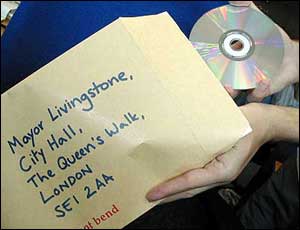 Mayor Livingstone,
City Hall,
The Queen's Walk,
LONDON
SE1 2AA
not bend